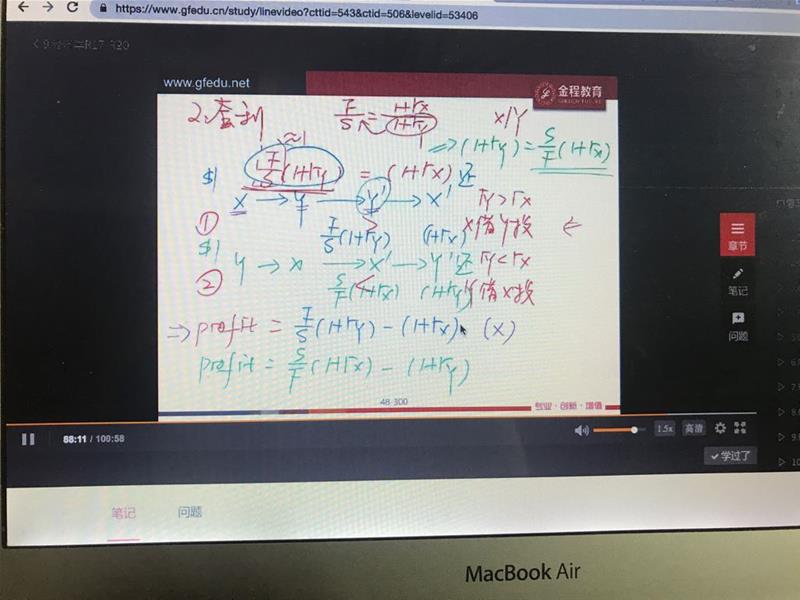 https://www.gfedu.cn/study/linevideo?cttid=543&ctid=506&levelid=53406
www.gfedu.net
金程教育
GOLDEN FUTURE
2.套利 F/S = 1+rx/1+ry X/Y
⇒ (1+ry) = S/F (1+rx)
≈1
$1 F/S (1+ry) = (1+rx) 还
X → Y → Y' → X' ry > rx
① F/S (1+ry) (1+rx) X借Y投 ⇐
$1 Y → X → X' → Y' 还 ry < rx
② S/F (1+rx) (1+ry) Y借X投
⇒ profit = F/S (1+ry) - (1+rx) (X)
profit = S/F (1+rx) - (1+ry)
48-300
专业·创新·增值
章节
笔记
问题
88:11 / 100:58
1.5x
高清
学过了
笔记 问题
MacBook Air